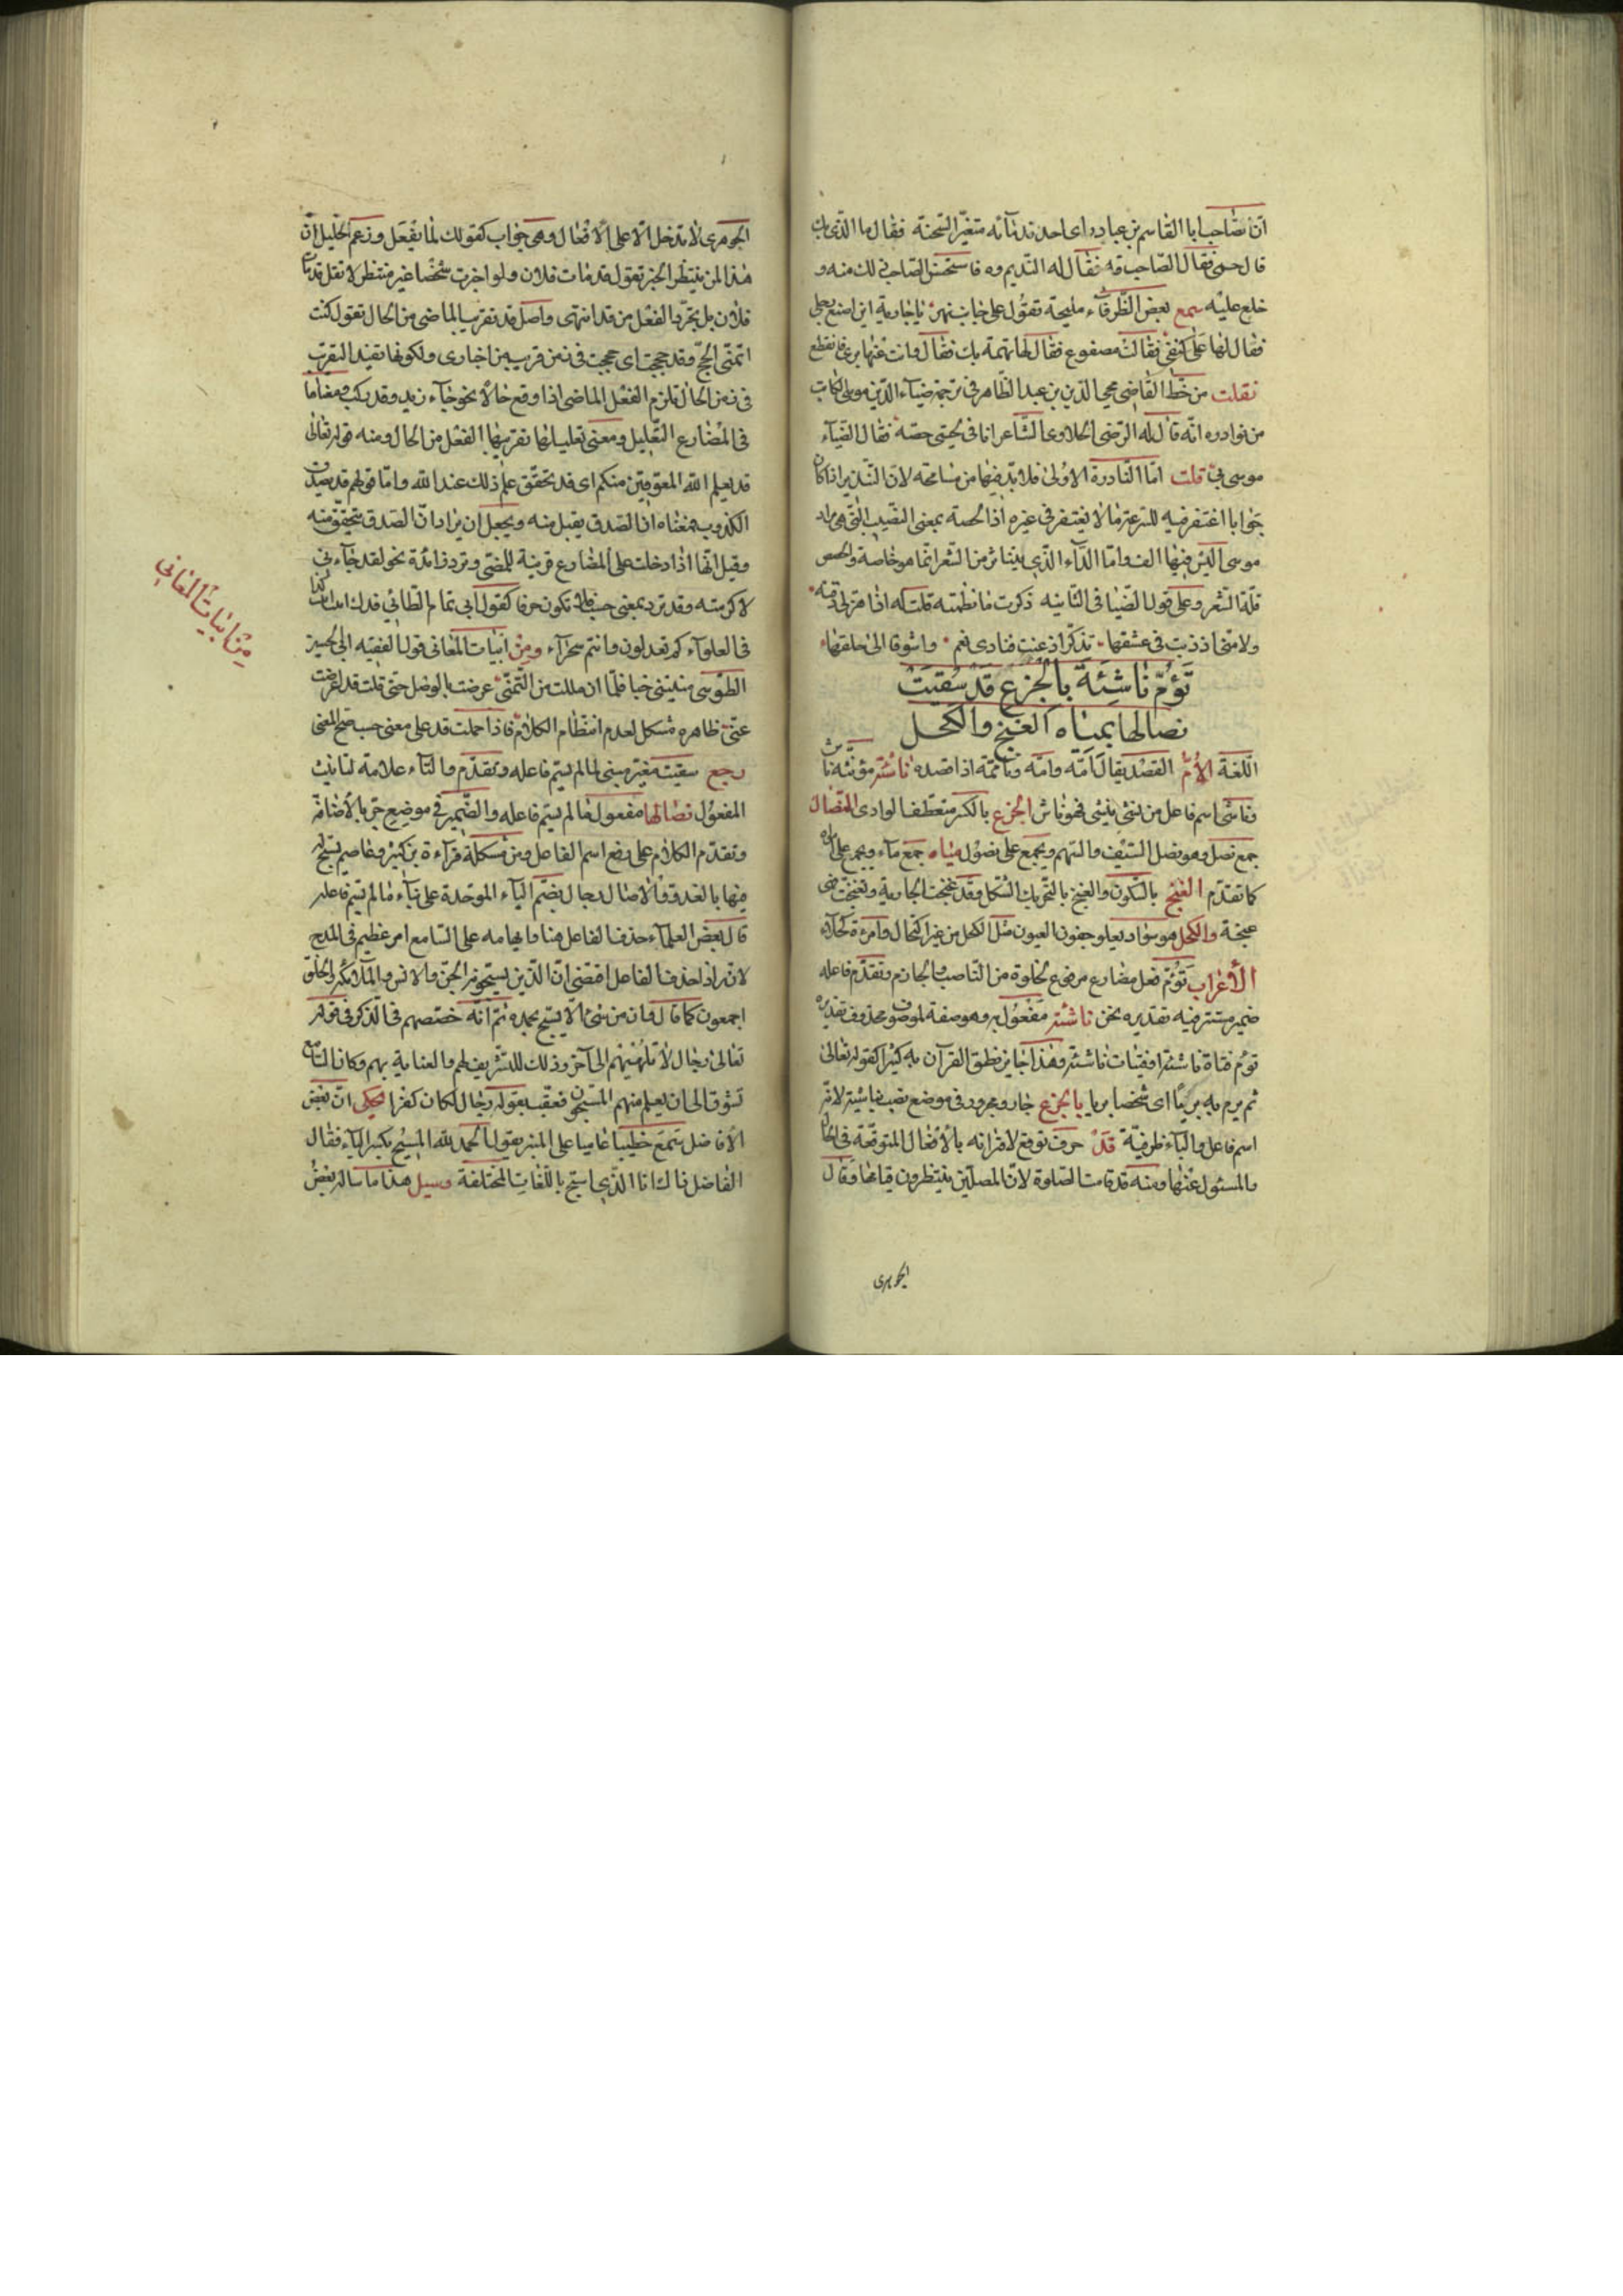 انّ الصّاحب ابا القاسم بن عباد راى احد ندمآئه متغيّر السّحنة فقال ما الّذى بك
قال حمى فقال الصّاحب قه فقال له النّديم وه فاستحسن الصّاحب ذلك منه و
خلع عليه سمع بعض الظّرفآء مليحة تقول على جانب نهر يا جارية اين اضع رجلى
فقال لها على كتفى فقالت مصفوع فقال لها تهمة بك فقال وانت عنها
نقلت من خطّ القاضى محيى الدّين بن عبد الظّاهر فى ترجمة ضيآء الدّين موسى الكاتب
من نوادره انّه قال له الرّضى الحلاوى الشّاعر انا فى لحيتى حصّة فقال الضّيآء
موسى فىّ قلت امّا النّادرة الاولى فلا بدّ فيها من مسامحة لانّ التّندير اذا كان
جوابا اغتفر فيه للسّرعة ما لا يغتفر فى غيره اذ الحصة بمعنى النّصيب الّتى هى مراد
موسى ليس فيها الف وامّا الدّآء الّذى يتناثر من الشّعر انّما هو حاصّة والحصص
قلّة الشّعر وعلى قول الضّيا فى الثّانيه ذكرت ما نظمته قلت له اذا هزلى ذقنه
ولامتى اذ ذبت فى عشقها تذكّر اذ عنت فنادى نعم واشوقا الى حلقها
تَؤُمّ نَاشِئَةً بالجِزعِ قَدْ سُقِيَتْ
نصالها بمياه الغَنَجِ والكَحَل
اللّغة الأمّ القصد يقال امّه وامّه وتأمّمه اذا قصده ناشئة مؤنّثة ناش
وناشئ اسم فاعل من نشئ ينشئ فهو ناش الجزع بالكسر منعطف الوادى النّصال
جمع نصل وهو نصل السّيف والسّهم ويجمع على نصول مياه جمع مآء ويجمع على امواه
كما تقدّم الغنج بالسّكون والغنج بالتّحريك الشّكل وقد غنجت الجارية وتغنّجت فهى
غنجة والكحل هو سواد يعلو جفون العيون مثل الكحل من غير اكتحال وامرءة كحلآء
الأعراب تؤمّ فعل مضارع مرفوع لخلوّه من النّاصب والجازم وتقدّم فاعله
ضمير مستتر فيه تقديره نحن ناشئة مفعول به وهو صفة لموصوف محذوف تقديره
تؤم فتاة ناشئة او فتيات ناشئة وهذا جايز نطق القرآن به كثيرا كقوله تعالى
ثم يرم به بريّا اى شخصا بريا بالجزع جار ومجرور فى موضع نصب بناشئة لانّه
اسم فاعل والبآء ظرفيّة قَدْ حرف توقّع لاقترانه بالأفعال المتوقّعة فى الحال
والمسئول عنها ومنه قد قامت الصّلوة لانّ المصلّين ينتظرون قيامها وقال
الجوهرى
الجوهرى لا تدخل الّا على الأفعال وهى جواب كقولك لمّا يفعل وزعم الخليل انّ
هذا لمن ينتظر الخبر تقول قد مات فلان ولو اخبرت شخصا غير منتظر لا تقل قد مات
فلان بل يجرّد الفعل من قد انتهى واصل قد تقرّب الماضى من الحال تقول كنت
اتمنّى الحجّ وقد حججت اى حججت فى زمن قريب من اخبارى ولكونها تفيد التقرّب
فى زمن الحال تلزم الفعل الماضى اذا وقع حالًا نحو جآء زيد وقد ركب ومعناها
فى المضارع التّقليل ومعنى تقليلها تقريبها الفعل من الحال ومنه قوله تعالى
قد يعلم اللّه المعوّقين منكم اى قد تحقّق علم ذلك عند اللّه وامّا قولهم قد يصدق
الكذوب فمعناه انّ الصّدق يقبل منه ويجعل ان يراد انّ الصّدق يتحقّق منه
وقيل انّها اذا دخلت على المضارع قرينة للمضىّ وترد زائدة نحو لقد جآءنى
لاكرمته وقد ترد بمعنى حسب فلا تكون حرفا كقول ابى تمّام الطّائى قدك اتئب اربيت
فى الغلوآء كم تعذلون وانتم سجرآء ومن ابيات المعانى قول الفقيه ابى الحسين
الطّوسى منيتنى فلمّا ان مللت من التّمنّى عرضت بالوصل حتى قلت قد اعرضت
عنّى ظاهره مشكل لعدم انتظام الكلام فاذا حملت قد على معنى حسب صحّ المعنى
رجع سقيت مغيّر مبنى لما لم يسمّ فاعله وتقدّم والتآء علامة لتانيث
المفعول نصالها مفعول ما لم يسمّ فاعله والضّمير فى موضع جرّ بالأضافة
وتقدّم الكلام على رفع اسم الفاعل ومن مشكلة قرآءة بن كثير وعاصم يسبّح له
فيها بالغدوّ والآصال رجال بضمّ اليآء الموحّدة على بنآء ما لم يسمّ فاعله
قال بعض العلمآء حذف الفاعل هنا وابهامه على السّامع امر عظيم فى المدح
لانّه اذا حذف الفاعل اقتضى انّ الّذين يسبّحونه الجنّ والانس والملآئكة والخلق
اجمعون كما قال وان من شئ الّا يسبّح بحمده ثمّ انّه خصّصهم فى الذّكر فى قوله
تعالى رجال لا تلهيهم الى آخره وذلك للتّشريف لهم والعناية بهم وكان السّامع
تشوّق الى ان يعلم منهم المسبّحون فعقّب بقوله رجال لكان كفرا حكى انّ بعض
الأفاضل سمع خطيبا عاميا على المنبر يقول الحمد للّه المسبّح بكسر البآء فقال
الفاضل ذالك انا الّذى اسبّح باللّغات المختلفة وسبيل هذا ما ساله بعض
من ابيات المعانى